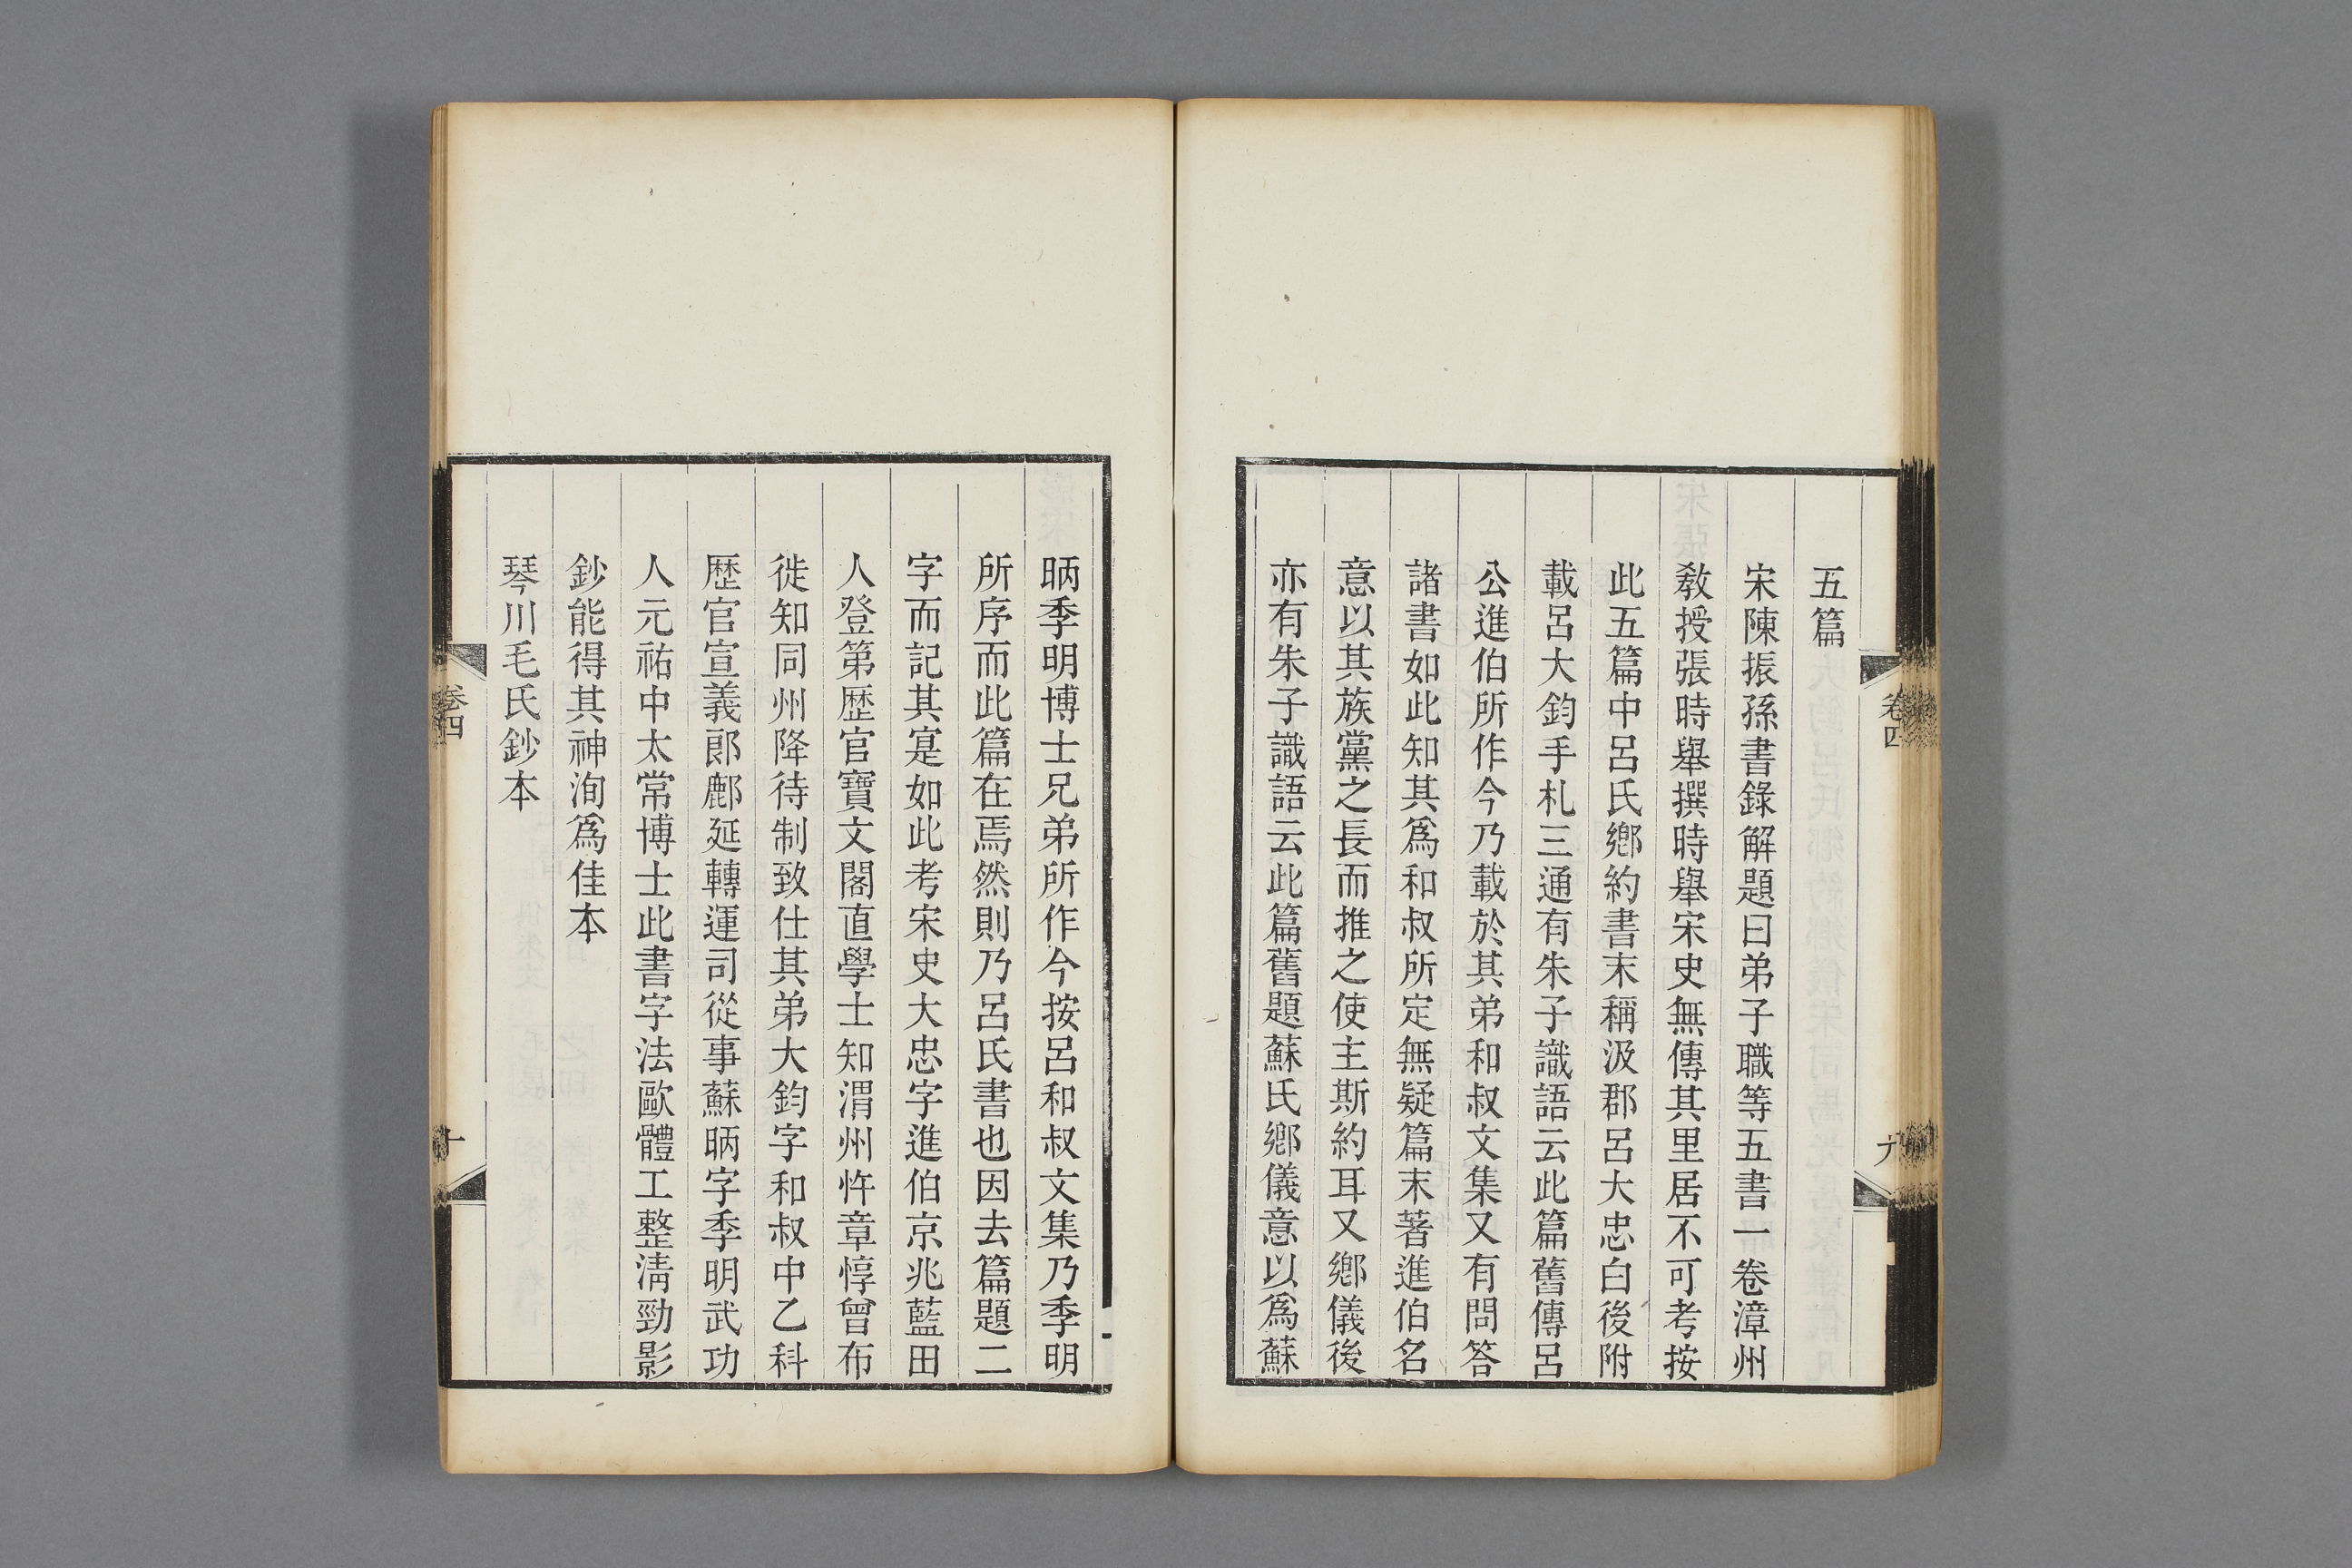 五篇
宋陳振孫書錄解題曰弟子職等五書一卷漳州
敎授張時舉撰時舉宋史無傳其里居不可考按
此五篇中呂氏鄉約書末稱汲郡呂大忠白後附
載呂大鈞手札三通有朱子識語云此篇舊傳呂
公進伯所作今乃載於其弟和叔文集又有問答
諸書如此知其爲和叔所定無疑篇末著進伯名
意以其族黨之長而推之使主斯約耳又鄉儀後
亦有朱子識語云此篇舊題蘇氏鄉儀意以爲蘇
卷四
昞季明博士兄弟所作今按呂和叔文集乃季明
所序而此篇在焉然則乃呂氏書也因去篇題二
字而記其寔如此考宋史大忠字進伯京兆藍田
人登第歷官寶文閣直學士知渭州忤章惇曾布
徙知同州降待制致仕其弟大鈞字和叔中乙科
歷官宣義郎鄜延轉運司從事蘇昞字季明武功
人元祐中太常博士此書字法歐體工整淸勁影
鈔能得其神洵爲佳本
琴川毛氏鈔本
卷四
十